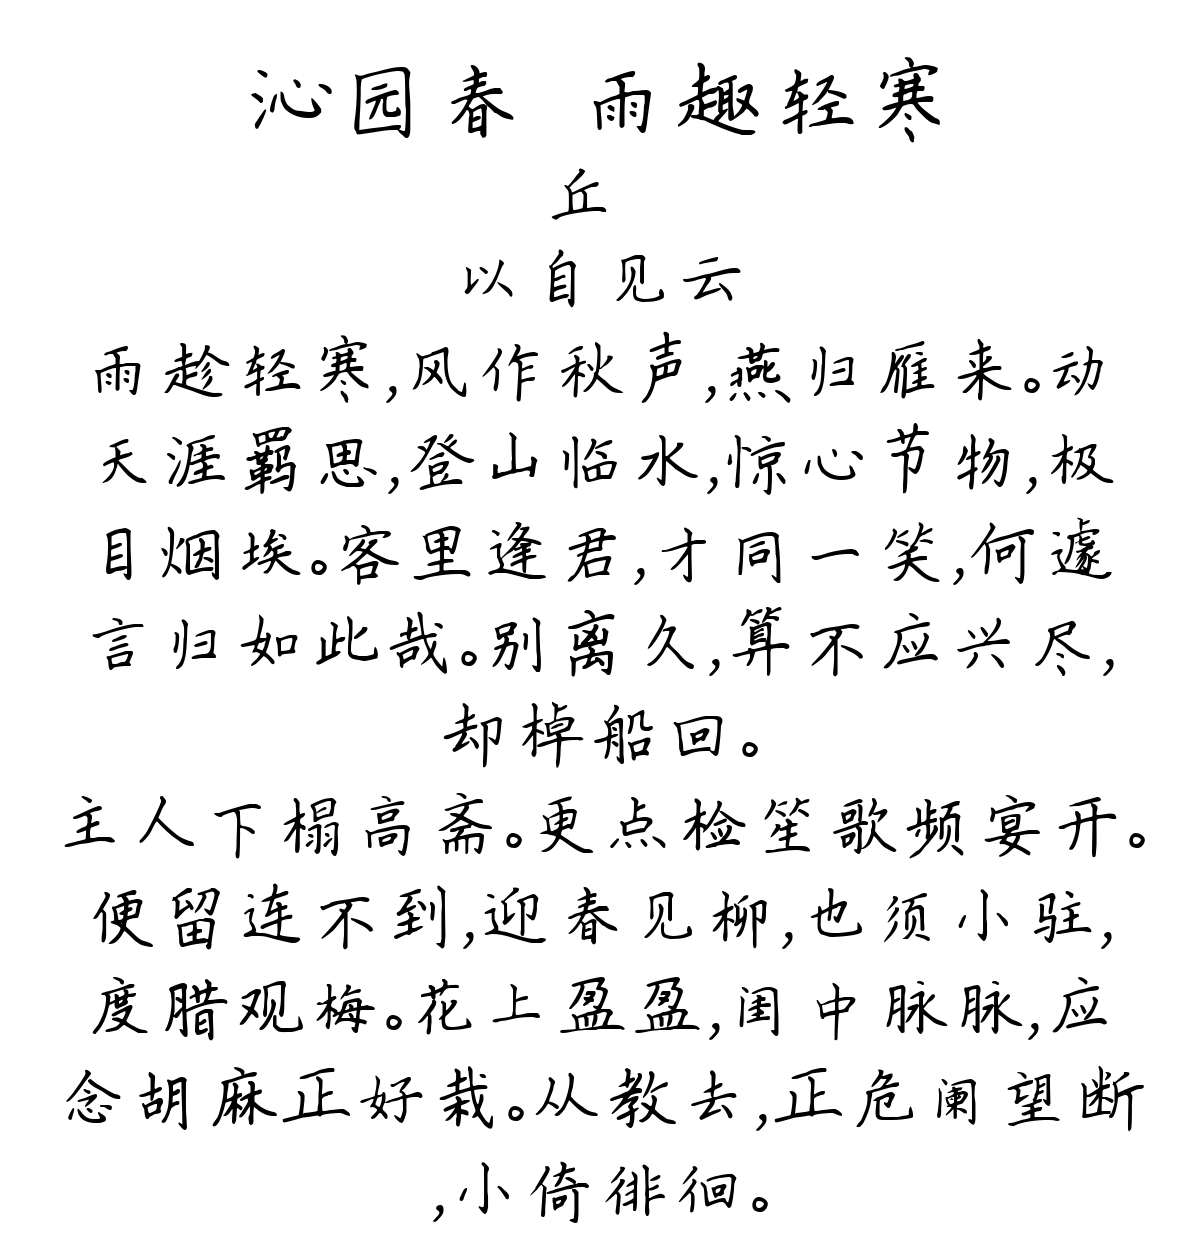 沁园春 雨趣轻寒
丘
以自见云
雨趁轻寒,风作秋声,燕归雁来。动
天涯羁思,登山临水,惊心节物,极
目烟埃。客里逢君,才同一笑,何遽
言归如此哉。别离久,算不应兴尽,
却棹船回。
主人下榻高斋。更点检笙歌频宴开。
便留连不到,迎春见柳,也须小驻,
度腊观梅。花上盈盈,闺中脉脉,应
念胡麻正好栽。从教去,正危阑望断
,小倚徘徊。